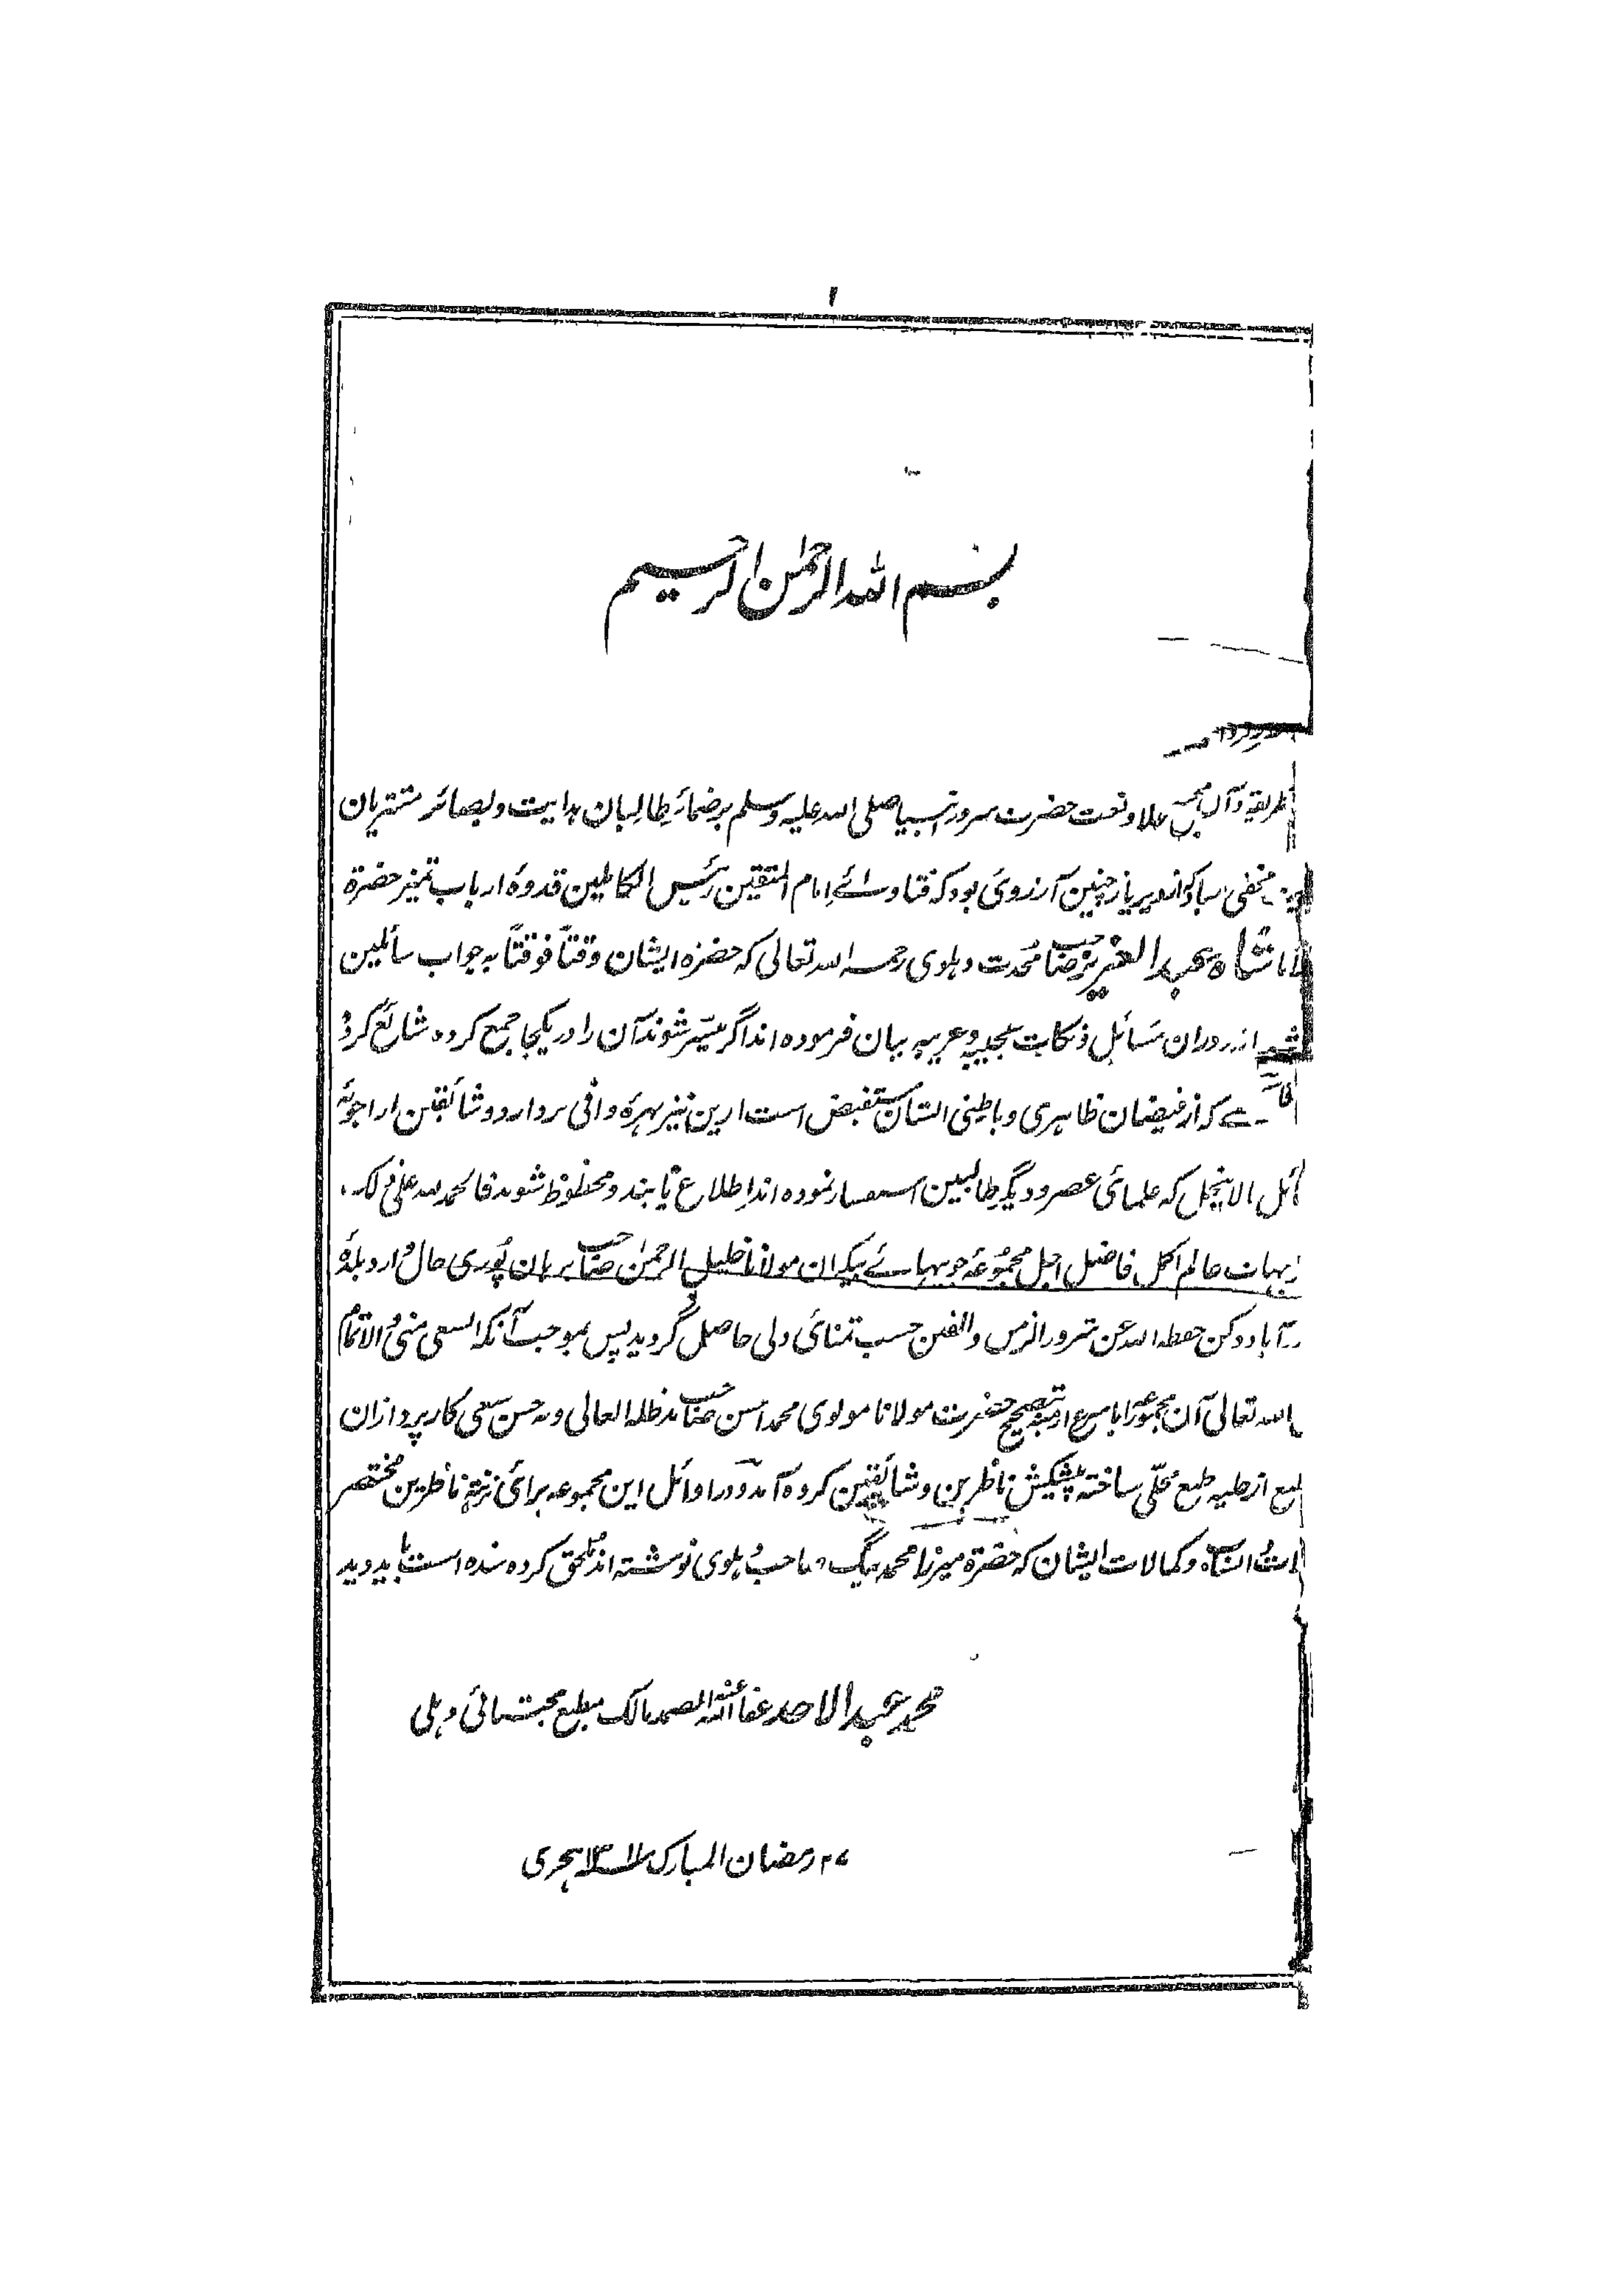 ۱
بسم الله الرحمن الرحیم
علا و نعت حضرت سرور انبیا صلی الله علیه وسلم بر ضمائر طالبان هدایت و بصائر مشتریان
مخفی مباد که از دیر باز چنین آرزوی بود که فتاوائے امام المتقین رئیس الکاملین قدوهٔ ارباب تمیز حضرة
شاه عبد العزیز صاحب محدث دهلوی رحمه الله تعالی که حضرة ایشان وقتاً فوقتاً به جواب سائلین
دران مسائل و نکات عجیبه و غریبه بیان فرموده اند اگر میسر شوند آن را در یکجا جمع کرده شائع کرد
که از فیضان ظاهری و باطنی ایشان مستفیض است ازین نیز بهرهٔ وافی بردارد و شائقین از اجوبهٔ
لاینحل که علمائی عصر و دیگر طالبین استفسار نموده اند اطلاع یابند و محظوظ شوند فالحمد لله علی ذلک
عالم اکمل فاضل اجل مجموعهٔ خوبیهائے بیکران مولانا خلیل الرحمن صاحب برهان پوری حال وارد بلدهٔ
دکن حفظه الله عن شرور الزمن والفتن حسب تمنائی دلی حاصل گردید پس بموجب آنکه السعی منی والاتمام
الله تعالی آن مجموعه را باسرع ازمنه بتصحیح حضرت مولانا مولوی محمد احسن صاحب مدظله العالی و به حسن سعی کارپردازان
از حلیه طبع محلّی ساخته پیشکیش ناظرین و شائقین کرده آمد و در اوائل این مجموعه برائی نزهة ناظرین مختصر
و کمالات ایشان که حضرة میرزا محمد بیگ صاحب دهلوی نوشته اند ملحق کرده شده است باید دید
محمد عبد الاحد عفا عنه الله الصمد مالک مطبع مجتبائی دهلی
رمضان المبارک هجری